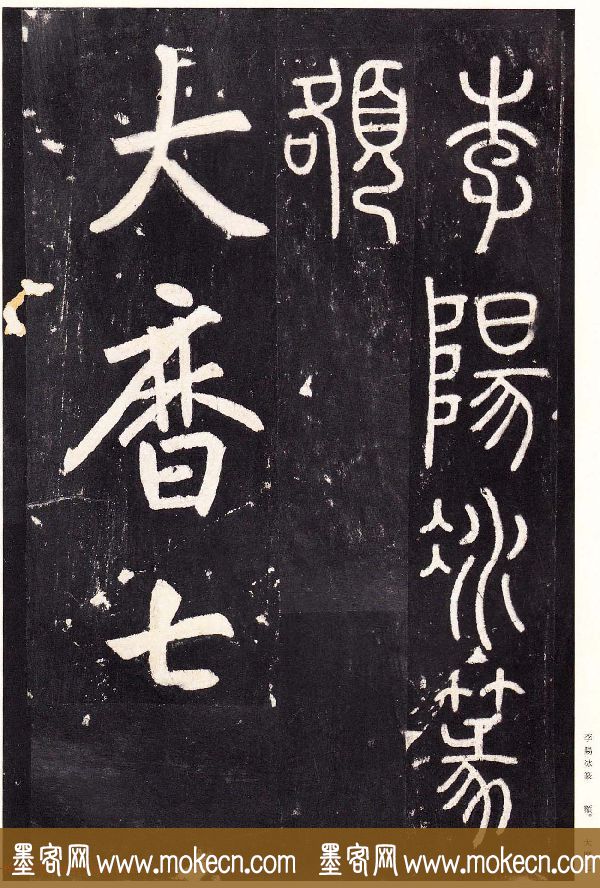 李陽冰篆
額
大曆七
李陽冰篆　額。大
墨客网 www.mokecn.com 墨客网 www.mokecn.com